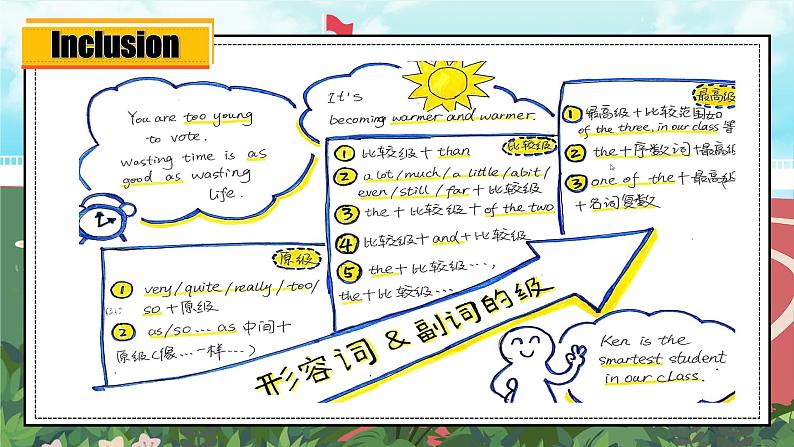 Inclusion
You are too young
to vote.
wasting time is as
good as wasting
life.
It's
becoming warmer and warmer.
原级
① very/quite/really/too/
so+原级
② as/so...as 中间+
原级(像...一样...)
比较级
① 比较级+than
② a lot/much/a little/a bit/
even/still/far+比较级
③ the+比较级+of the two
④ 比较级+and+比较级
⑤ the+比较级...,
the+比较级...
最高级
① 最高级+比较范围如
of the three, in our class等
② the+序数词+最高级
③ one of the+最高级
+名词复数
形容词&副词的级
Ken is the
smartest student
in our class.